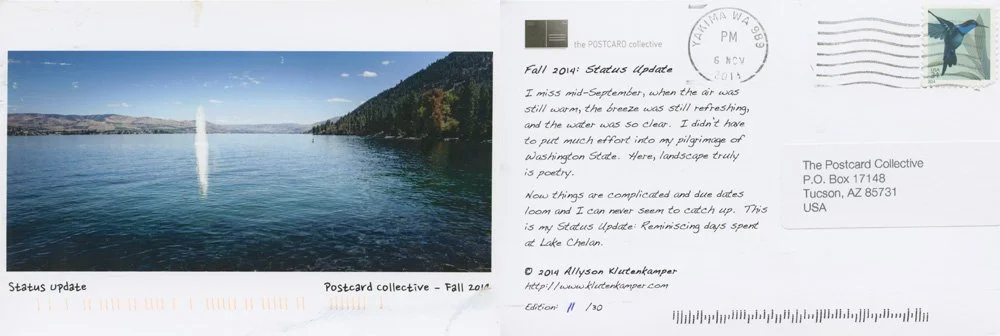 Status update
Postcard collective - Fall 2014
the POSTCARD collective
Fall 2014: Status Update
I miss mid-September, when the air was
still warm, the breeze was still refreshing,
and the water was so clear. I didn't have
to put much effort into my pilgrimage of
Washington State. Here, landscape truly
is poetry.
Now things are complicated and due dates
loom and I can never seem to catch up. This
is my Status Update: Reminiscing days spent
at Lake Chelan.
© 2014 Allyson Klutenkamper
http://www.klutenkamper.com
Edition: 11 /30
YAKIMA WA 989
PM
6 NOV
2014
The Postcard Collective
P.O. Box 17148
Tucson, AZ 85731
USA